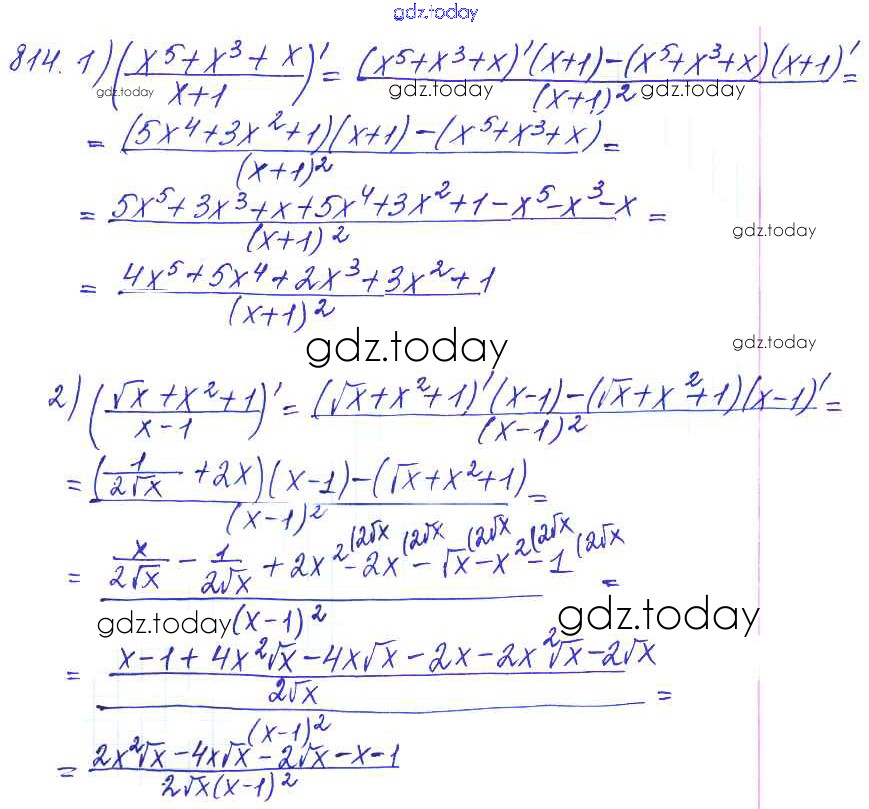 gdz.today
814. 1) ((x⁵+x³+x)/(x+1))' = ((x⁵+x³+x)'(x+1)-(x⁵+x³+x)(x+1)')/(x+1)² =
gdz.today gdz.today gdz.today
= ((5x⁴+3x²+1)(x+1)-(x⁵+x³+x))/(x+1)² =
= (5x⁵+3x³+x+5x⁴+3x²+1-x⁵-x³-x)/(x+1)² =
gdz.today
= (4x⁵+5x⁴+2x³+3x²+1)/(x+1)²
gdz.today gdz.today
2) ((√x+x²+1)/(x-1))' = ((√x+x²+1)'(x-1)-(√x+x²+1)(x-1)')/(x-1)² =
= ((1/(2√x)+2x)(x-1)-(√x+x²+1))/(x-1)² =
= (x/(2√x) - 1/(2√x) + 2x²⁽²√ˣ - 2x⁽²√ˣ - √x⁽²√ˣ - x²⁽²√ˣ - 1⁽²√ˣ)/(x-1)² =
gdz.today gdz.today
= ((x-1+4x²√x-4x√x-2x-2x²√x-2√x)/(2√x))/(x-1)² =
= (2x²√x-4x√x-2√x-x-1)/(2√x(x-1)²)